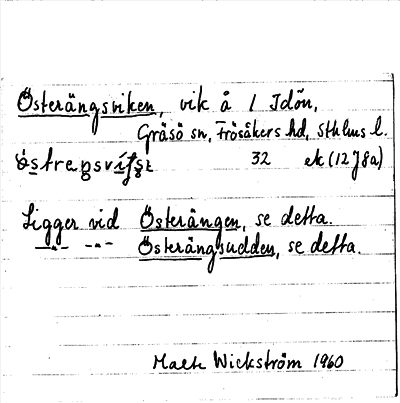 Österängsviken, vik å 1 Idön,
Gräsö sn, Frösåkers hd, Sthlms l.
32 ek (12 J8a)
Ligger vid Österängen, se detta.
—"— —"— Österängsudden, se detta.
Malte Wickström 1960